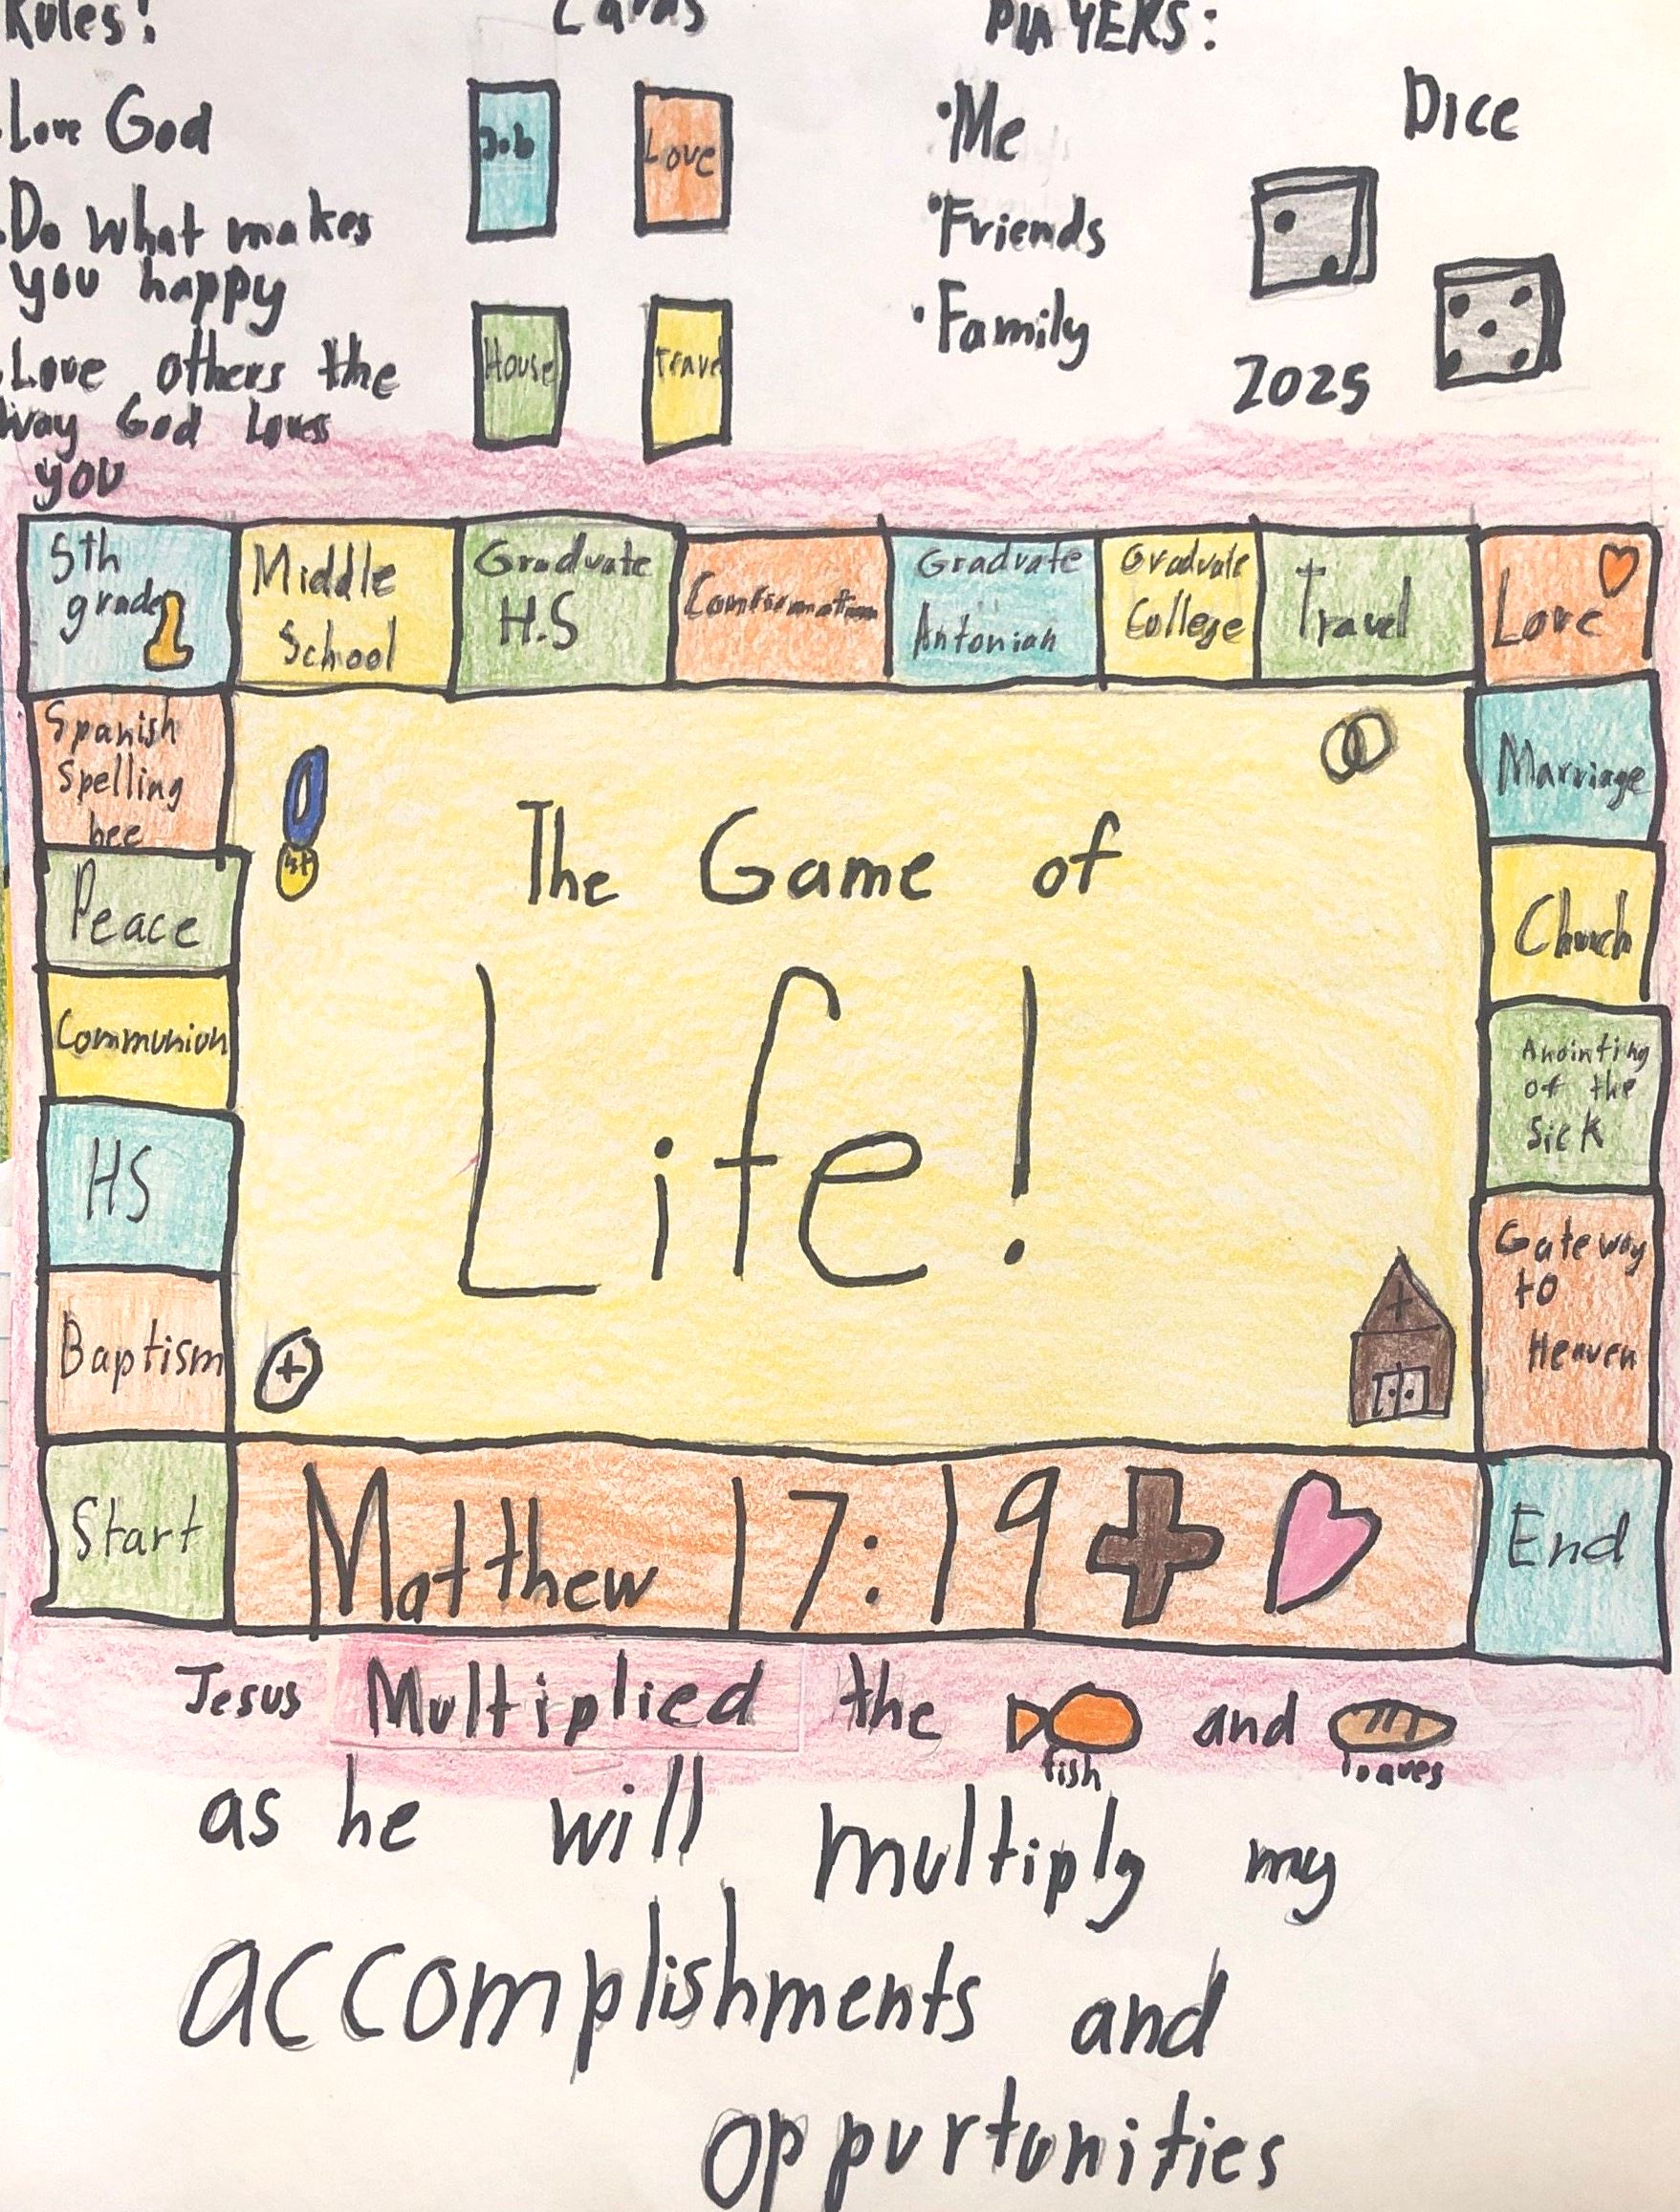 Rules!
Love God
Do what makes
you happy
Love others the
way God loves
you
Cards
Job
Love
House
Travel
PLAYERS:
Me
Friends
Family
Dice
2025
5th
grade
Middle
School
Graduate
H.S
Confirmation
Graduate
Antonian
Graduate
College
Travel
Love
Spanish
Spelling
bee
Peace
Communion
HS
Baptism
Start
1st
The Game of
Life!
Marriage
Church
Anointing
of the
Sick
Gateway
to
Heaven
End
Matthew 17:19
Jesus Multiplied the and
fish loaves
as he will multiply my
accomplishments and
oppurtunities